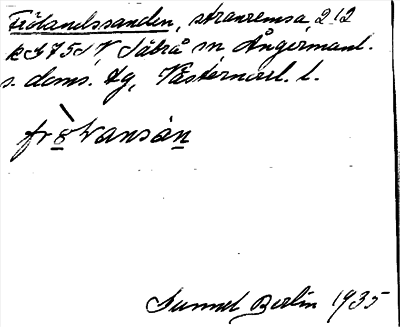 Frölandssanden, strandremsa, 212
k375d V Säbrå sn Ångermanl.
s. doms. dg, Västernorrl. l.
frö̀lansàn
Gunnel Berlin 1935